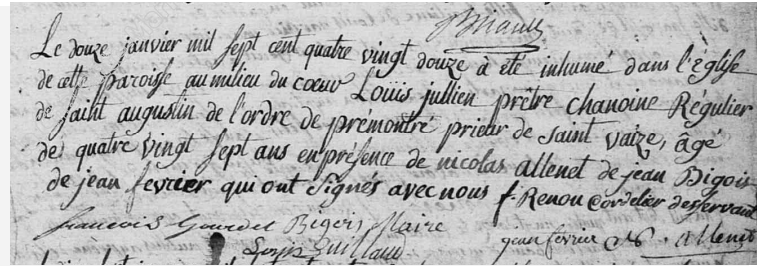 Briault
Le douze janvier mil sept cent quatre vingt douze à été inhumé dans l'église
de cette paroisse au milieu du coeur Loüis jullien prêtre chanoine Régulier
de saint augustin de l'ordre de prémontré prieur de saint vaize, âgé
de quatre vingt sept ans en présence de nicolas allenet de jean Bigois
de jean fevrier qui ont signés avec nous f. Renou Cordelier desservant
francois Gourdet Bigois Maire jean fevrier N. Allenet
Guillaud